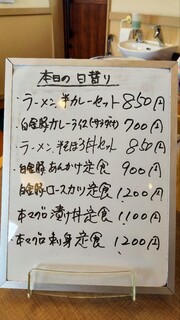 本日の日替り
・ラーメン、半カレーセット 850円
・白金豚カレーライス(サラダ付) 700円
・ラーメン、そぼろ丼セット 850円
・白金豚あんかけ定食 900円
・白金豚ロースカツ定食 1,200円
・本マグロ漬け丼定食 1,100円
・本マグロ刺身定食 1200円